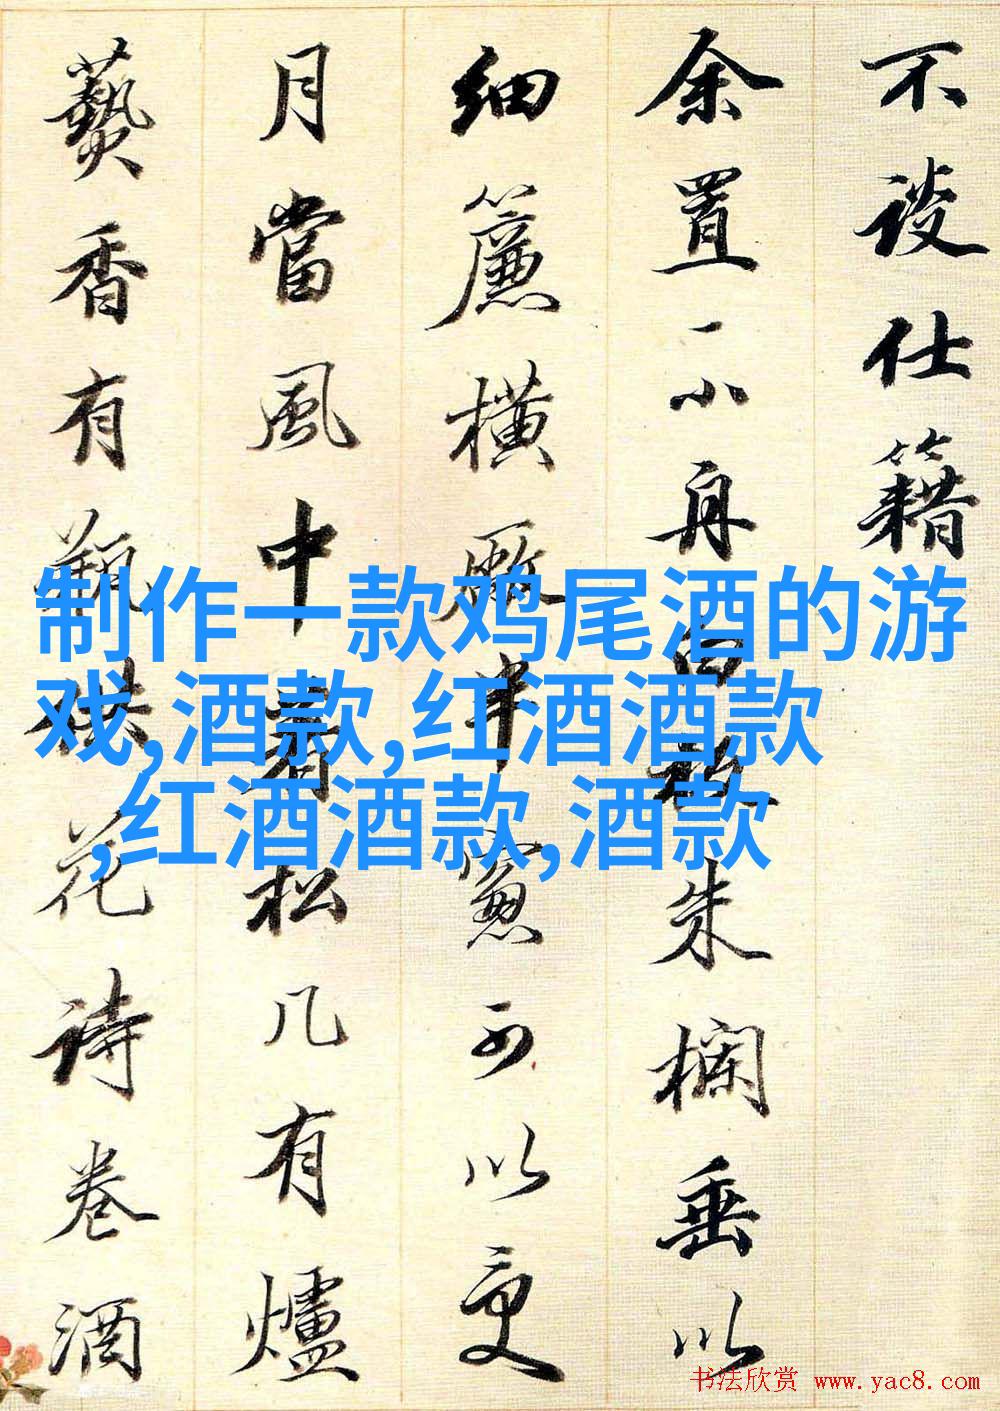 不談仕籍
余置一小舟白板朱欄垂以
細簾橫厰半窻可以更
月當風中看松几有爐
爇香有瓶供花詩卷酒
制作一款鸡尾酒的游
戏,酒款,红酒酒款
,红酒酒款,酒款
书法欣赏 www.yac8.com